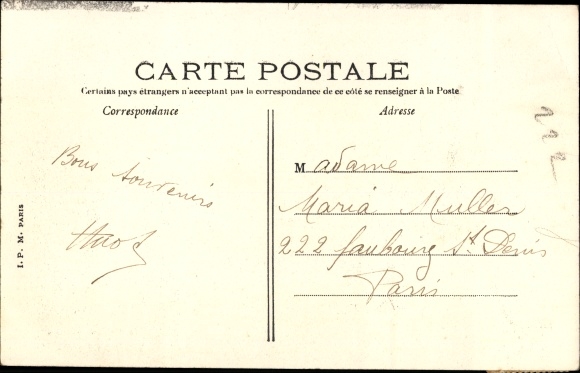 CARTE POSTALE
Certains pays étrangers n'acceptant pas la correspondance de ce côté se renseigner à la Poste
Correspondance
Adresse
Bons souvenirs
Madame
Maria Muller
222 faubourg St Denis
Paris
I. P. M. PARIS
222